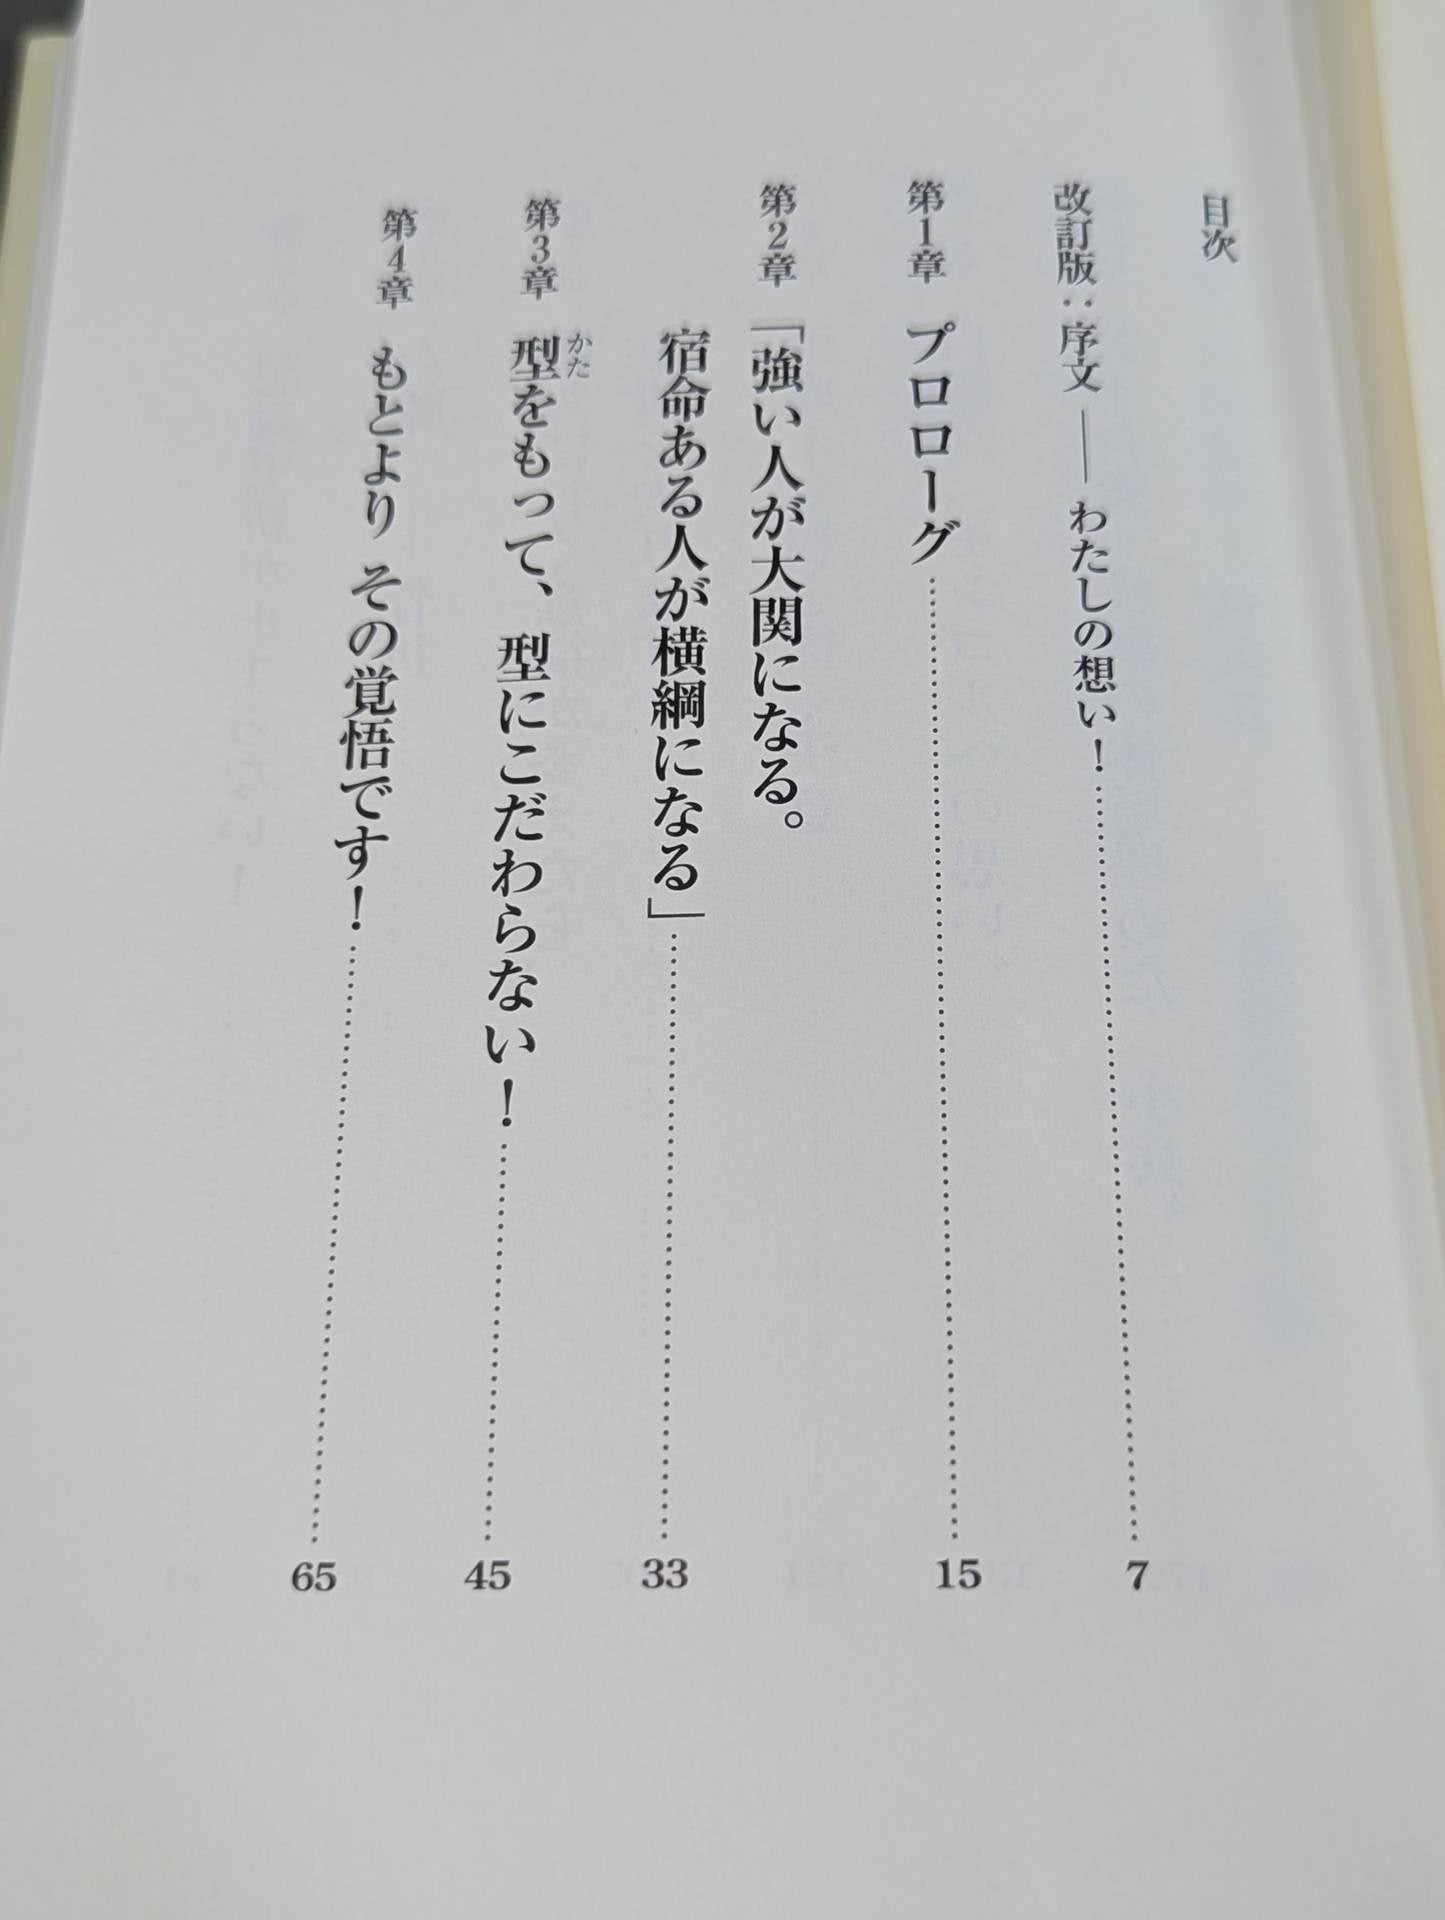 目次
改訂版：序文 ── わたしの想い！ 7
第1章 プロローグ 15
第2章 「強い人が大関になる。
宿命ある人が横綱になる」 33
かた
第3章 型をもって、型にこだわらない！ 45
第4章 もとより その覚悟です！ 65